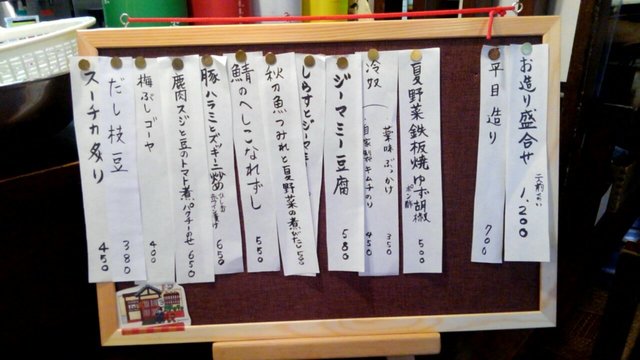 お造り盛合せ 1,200
平目造り 700
夏野菜鉄板焼 ゆず胡椒ポン酢 500
冷奴
薬味ぶっかけ 350
自家製キムチのり 450
ジーマミー豆腐 580
しらすとジーマミ
秋の魚つみれと夏野菜の煮びたし 580
鯖のへしこなれずし 550
豚ハラミとズッキーニ炒め 650
鹿肉スジと豆のトマト煮 パクチーのせ 650
梅ぶしゴーヤ 400
だし枝豆 380
スーチカ炙り 450